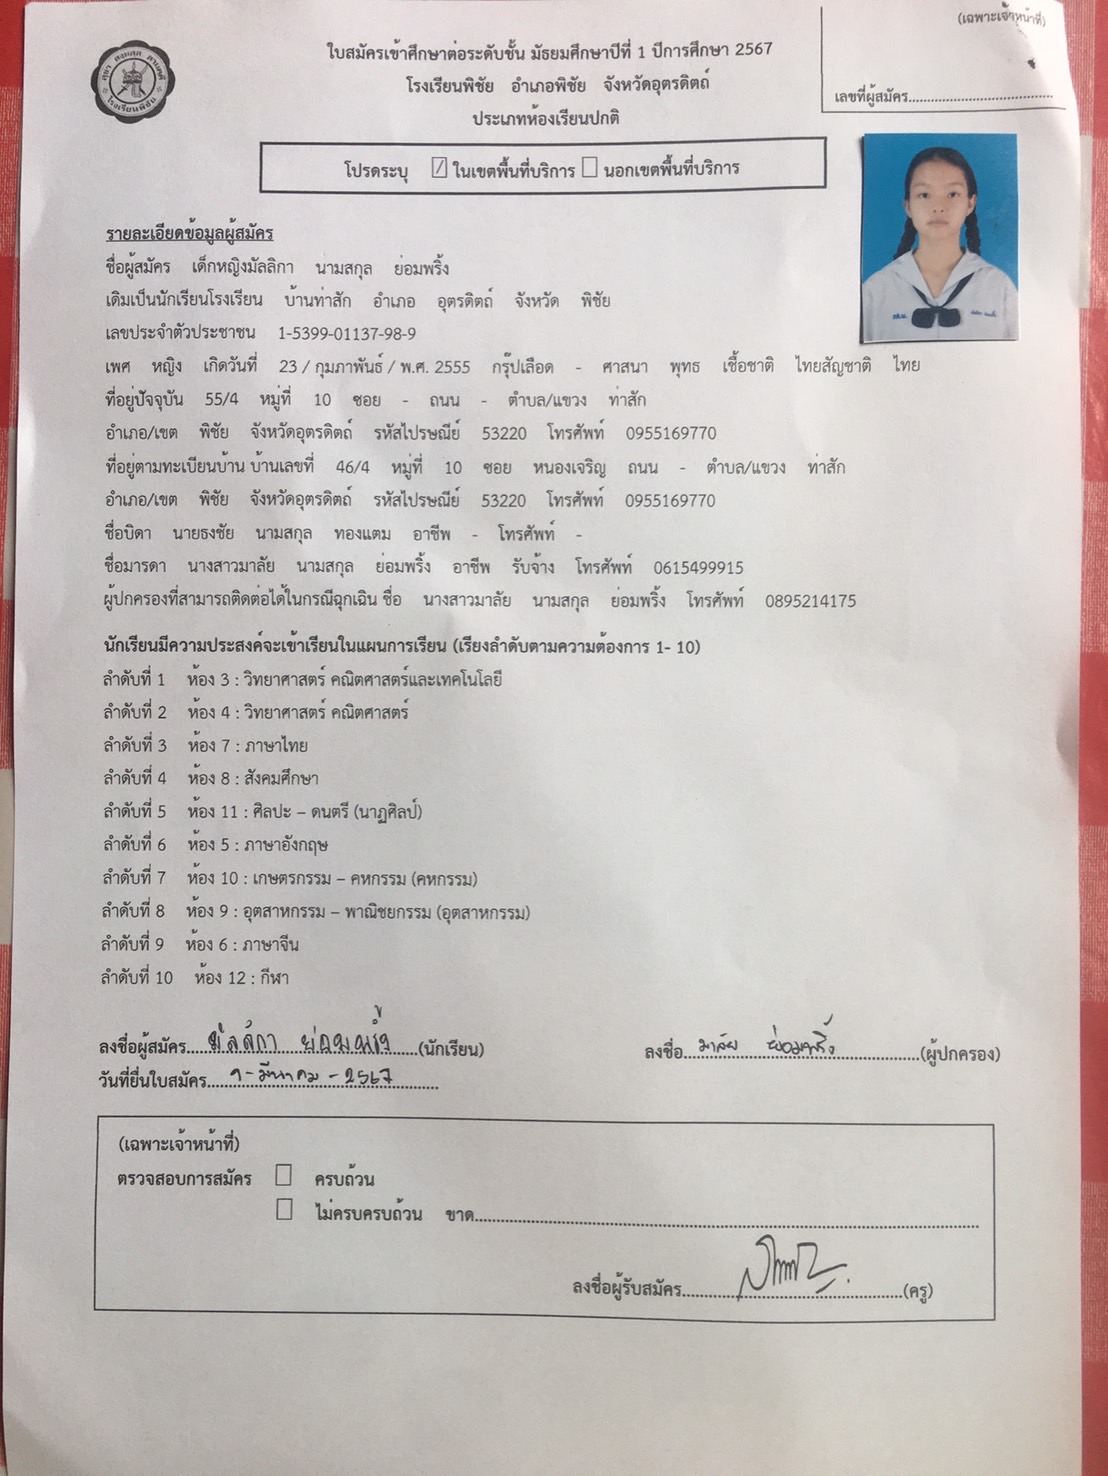 (เฉพาะเจ้าหน้าที่)
ใบสมัครเข้าศึกษาต่อระดับชั้น มัธยมศึกษาปีที่ 1 ปีการศึกษา 2567
โรงเรียนพิชัย อำเภอพิชัย จังหวัดอุตรดิตถ์
เลขที่ผู้สมัคร
ประเภทห้องเรียนปกติ
โรงเรียนพิชัย
โปรดระบุ ☑ ในเขตพื้นที่บริการ ☐ นอกเขตพื้นที่บริการ
รายละเอียดข้อมูลผู้สมัคร
ชื่อผู้สมัคร เด็กหญิงมัลลิกา นามสกุล ย่อมพริ้ง
เดิมเป็นนักเรียนโรงเรียน บ้านท่าสัก อำเภอ อุตรดิตถ์ จังหวัด พิชัย
เลขประจำตัวประชาชน 1-5399-01137-98-9
เพศ หญิง เกิดวันที่ 23 / กุมภาพันธ์ / พ.ศ. 2555 กรุ๊ปเลือด - ศาสนา พุทธ เชื้อชาติ ไทยสัญชาติ ไทย
ที่อยู่ปัจจุบัน 55/4 หมู่ที่ 10 ซอย - ถนน - ตำบล/แขวง ท่าสัก
อำเภอ/เขต พิชัย จังหวัดอุตรดิตถ์ รหัสไปรษณีย์ 53220 โทรศัพท์ 0955169770
ที่อยู่ตามทะเบียนบ้าน บ้านเลขที่ 46/4 หมู่ที่ 10 ซอย หนองเจริญ ถนน - ตำบล/แขวง ท่าสัก
อำเภอ/เขต พิชัย จังหวัดอุตรดิตถ์ รหัสไปรษณีย์ 53220 โทรศัพท์ 0955169770
ชื่อบิดา นายธงชัย นามสกุล ทองแตม อาชีพ - โทรศัพท์ -
ชื่อมารดา นางสาวมาลัย นามสกุล ย่อมพริ้ง อาชีพ รับจ้าง โทรศัพท์ 0615499915
ผู้ปกครองที่สามารถติดต่อได้ในกรณีฉุกเฉิน ชื่อ นางสาวมาลัย นามสกุล ย่อมพริ้ง โทรศัพท์ 0895214175
นักเรียนมีความประสงค์จะเข้าเรียนในแผนการเรียน (เรียงลำดับตามความต้องการ 1- 10)
ลำดับที่ 1 ห้อง 3 : วิทยาศาสตร์ คณิตศาสตร์และเทคโนโลยี
ลำดับที่ 2 ห้อง 4 : วิทยาศาสตร์ คณิตศาสตร์
ลำดับที่ 3 ห้อง 7 : ภาษาไทย
ลำดับที่ 4 ห้อง 8 : สังคมศึกษา
ลำดับที่ 5 ห้อง 11 : ศิลปะ – ดนตรี (นาฏศิลป์)
ลำดับที่ 6 ห้อง 5 : ภาษาอังกฤษ
ลำดับที่ 7 ห้อง 10 : เกษตรกรรม – คหกรรม (คหกรรม)
ลำดับที่ 8 ห้อง 9 : อุตสาหกรรม – พาณิชยกรรม (อุตสาหกรรม)
ลำดับที่ 9 ห้อง 6 : ภาษาจีน
ลำดับที่ 10 ห้อง 12 : กีฬา
ลงชื่อผู้สมัคร มัลลิกา ย่อมพริ้ง (นักเรียน) ลงชื่อ มาลัย ย่อมพริ้ง (ผู้ปกครอง)
วันที่ยื่นใบสมัคร ๆ-มีนาคม-2567
(เฉพาะเจ้าหน้าที่)
ตรวจสอบการสมัคร ☐ ครบถ้วน
☐ ไม่ครบครบถ้วน ขาด
ลงชื่อผู้รับสมัคร (ครู)